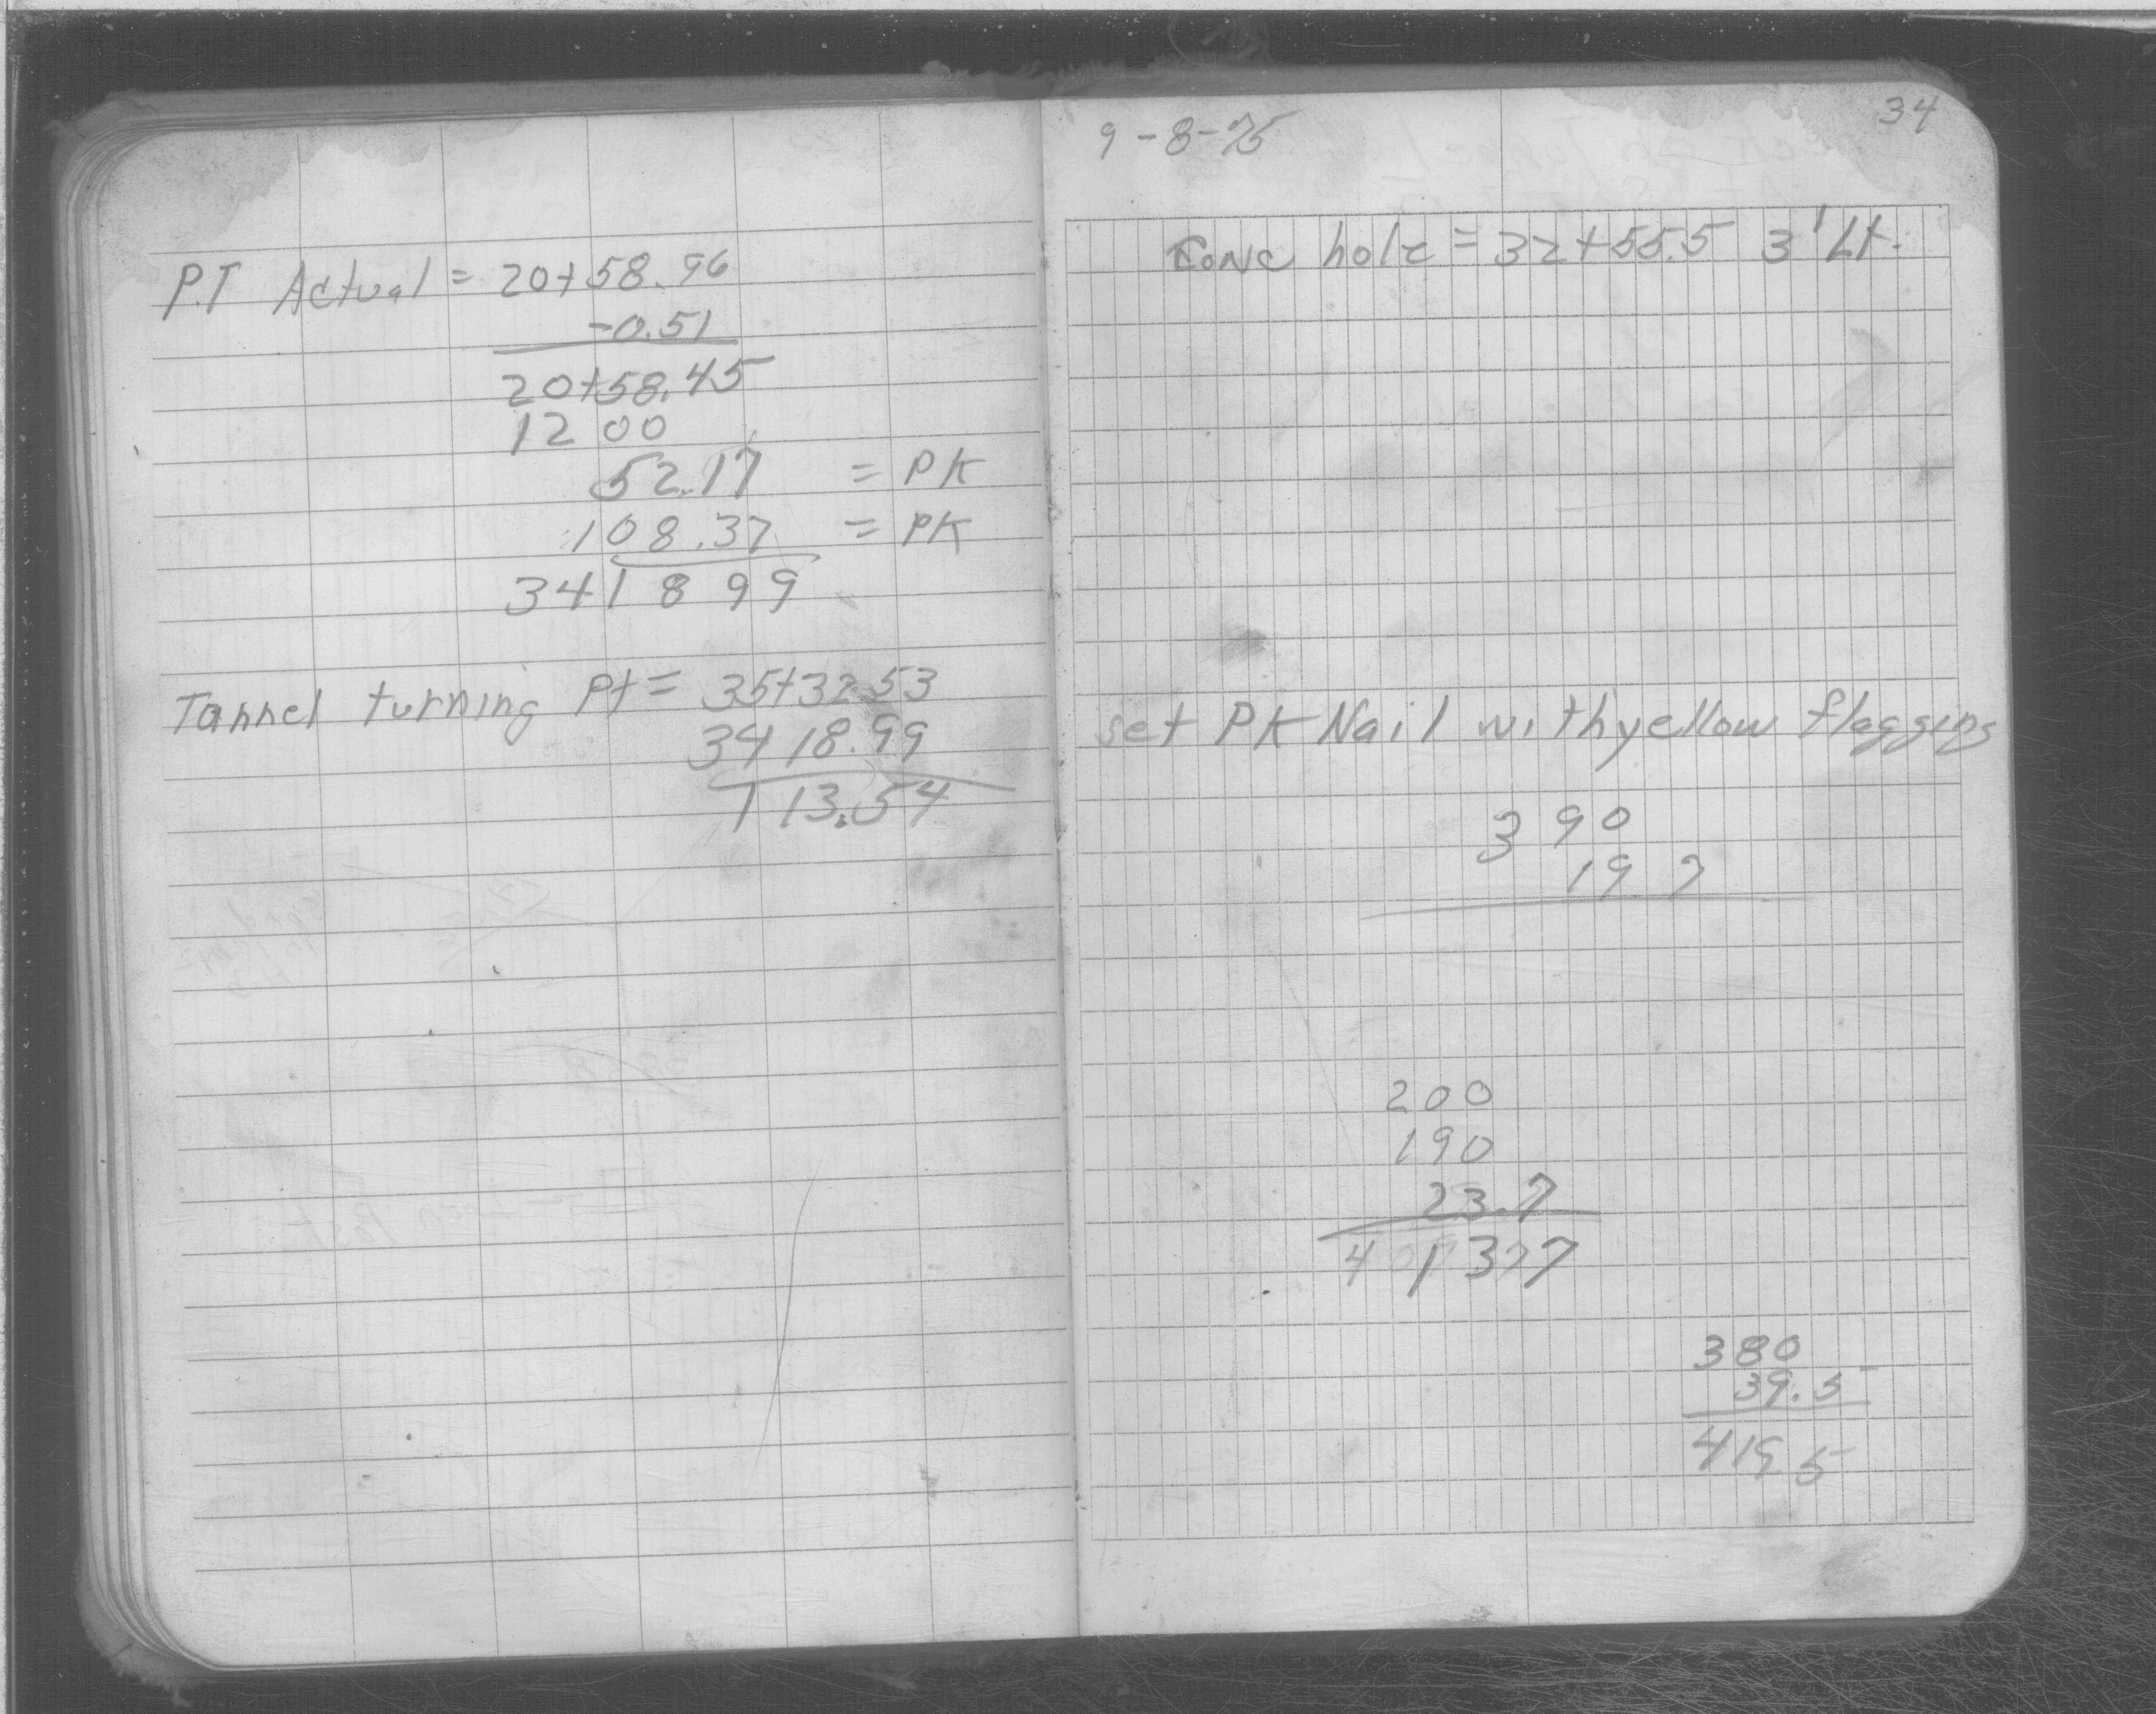 P.T Actual = 20+58.96
-0.51
20+58.45
12 00
52.17 = PK
108.37 = PK
341 8 99
Tannel turning Pt = 35+32.53
34 18.99
1 13.54
34
9-8-75
Conc hole = 32+55.5 3' Lt.
set PK Nail with yellow flagging
3 90
19 7
200
190
23.7
4 1377
380
39.5
419 5